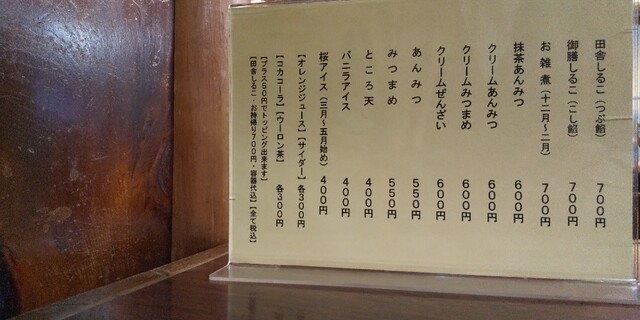 田舎しるこ（つぶ餡） 700円
御膳しるこ（こし餡） 700円
お雑煮（十二月～二月） 700円
抹茶あんみつ 600円
クリームあんみつ 600円
クリームみつまめ 600円
クリームぜんざい 600円
あんみつ 550円
みつまめ 550円
ところ天 400円
バニラアイス 400円
桜アイス（三月～五月始め） 400円
【オレンジジュース】【サイダー】 各300円
【コカコーラ】【ウーロン茶】 各300円
【プラス50円でトッピング出来ます】
【田舎しるこ・お持帰り700円・容器代込】【全て税込】